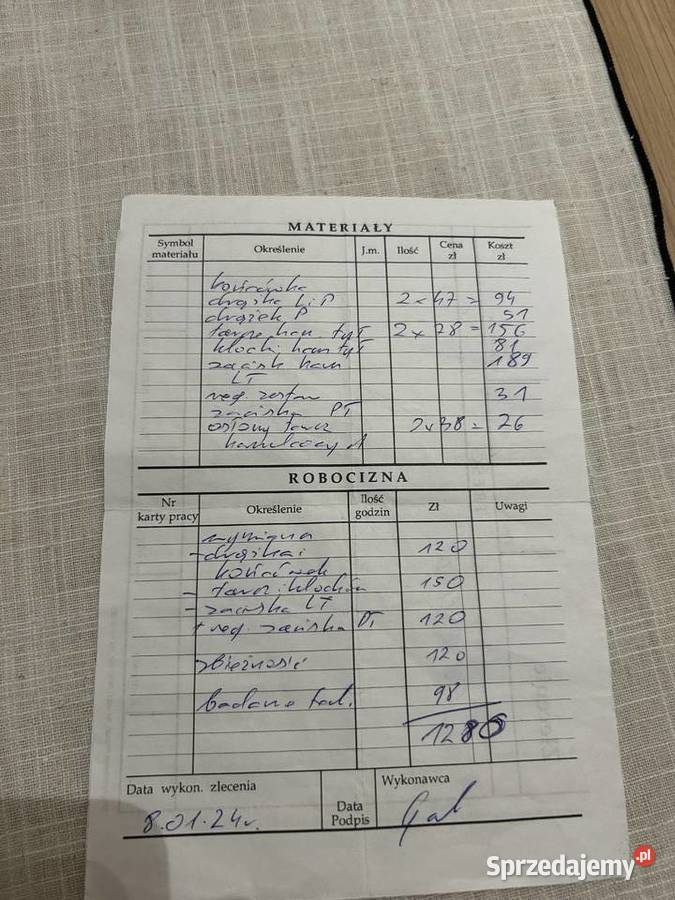 MATERIAŁY
Symbol materiału Określenie J.m. Ilość Cena zł Koszt zł
końcówka
drążka L i P 2 x 47 = 94
drążek P 51
tarcze ham tył 2 x 78 = 156
klocki ham tył 81
zacisk ham 189
LT
reg. zestaw 31
zaciska PT
osłony tarcz 2 x 38 = 26
hamulcowych
ROBOCIZNA
Nr karty pracy Określenie Ilość godzin Zł Uwagi
wymiana
- drążka i 120
końcówek
- tarcz i klocków 150
- zaciska LT
+ reg. zaciska PT 120
zbieżność 120
badane 98
1280
Data wykon. zlecenia
8.01.24r.
Data Podpis
Wykonawca
Sprzedajemy.pl